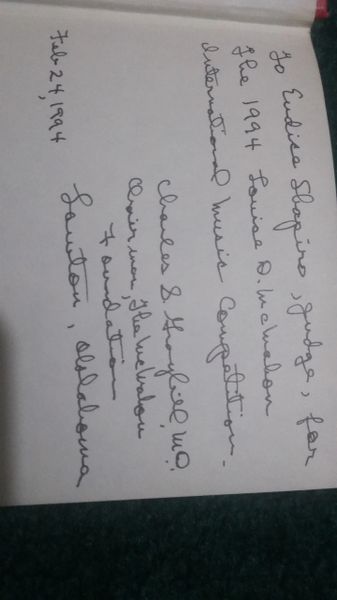 To Eudice Shapiro, judge, for
the 1994 Louise D. McMahon
International Music Competition -
Charles S. Graybill, MD.
Chairman, The McMahon
Foundation
Lawton, Oklahoma
Feb 24, 1994